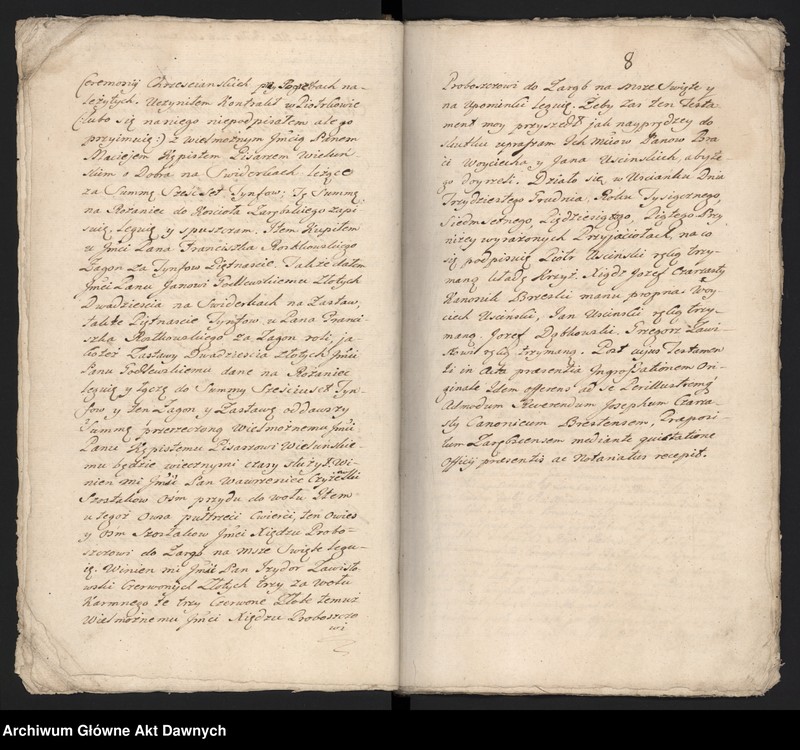 Ceremonij Chrzescianskich przy Pogrzebach na-
leżytych. Uczyniłem Kontrakt w Piotrkowie
(lubo się na niego niepodpisałem ale go
przyimuię:) z wielmożnym Jmcią Panem
Maciejem Kępistem Pisarzem Wieluń-
skim o Dobra na Swiderkach leżące
za Summę Sześćset Tynfow: Tę Summę
na Rożaniec do Kościoła Zargbskiego zapi-
suię, leguię y spuszczam. Item Kupiłem
u Jmci Pana Franciszka Roszkowskiego
Zagon za Tynfow Piętnascie. Także dałem
Jmci Panu Janowi Godlewskiemu Złotych
Dwadziescia na Swiderkach na Zastaw,
także Piętnascie Tynfow, u Pana Franci-
szka Roszkowskiego za Zagon roli, ja
koteż Zastawy Dwadziescia Złotych Jmci
Panu Godlewskiemu dane na Rożaniec
leguię y łączę do Summy Sześciuset Tyn-
fow y ten Zagon y Zastawę oddawszy
Summę przerzeczoną Wielmożnemu Jmci
Panu Kępistemu Pisarzowi Wieluńskie-
mu będzie wiecznymi czasy służył. Wi-
nien mi Jmść Pan Wawrzeniec
Szostakow Ośm przydu do wołu Item
u tegoż Owsa pułtrzeci Cwierci, ten Owies
y Ośm Szostakow Jmci Xiędzu Probo-
szczowi do Zargb na Msze Swięte legu-
ię. Winien mi Jmść Pan Jzydor Zawisto
wski Czerwonych Złotych trzy za Wołu
Karmnego te trzy Czerwone Złote temuż
Wielmożnemu Jmci Xiędzu Proboszczo
wi
8
Proboszczowi do Zargb na Msze Swięte y
na Upominki leguię. Żeby zas ten Testa-
ment moy przyszedł jak nayprędzey do
skutku upraszam Ich Mciow Panow Bra
ci Woyciecha y Jana Uscinskich, aby te-
go doyrzeli. Działo się w Uscianku Dnia
Trzydziestego Grudnia, Roku Tysiącznego,
Siedmsetnego, Pięćdziesiątego, Piątego Przy
niżey wyrażonych Przyjaciołach, na co
się podpisuię Piotr Uscinski ręką trzy-
maną kładę Krzyż. Xiądz Jozef Czarzasty
Kanonik Brzeski manu propria. Woy-
ciech Usciński, Jan Usciński ręką trzy-
maną. Jozef Dąbkowski. Grzegorz Zawi-
stowski ręką trzymaną. Post cujus Testamen
ti in Acta præsentia Ingrossationem Ori-
ginale Idem offerens ad se Perillustrem
Admodum Reverendum Josephum Czarza-
sty Canonicum Brestensem, Præposi-
tum Zargbscensem mediante quietatione
Officij præsentis ac Notariatus recepit.